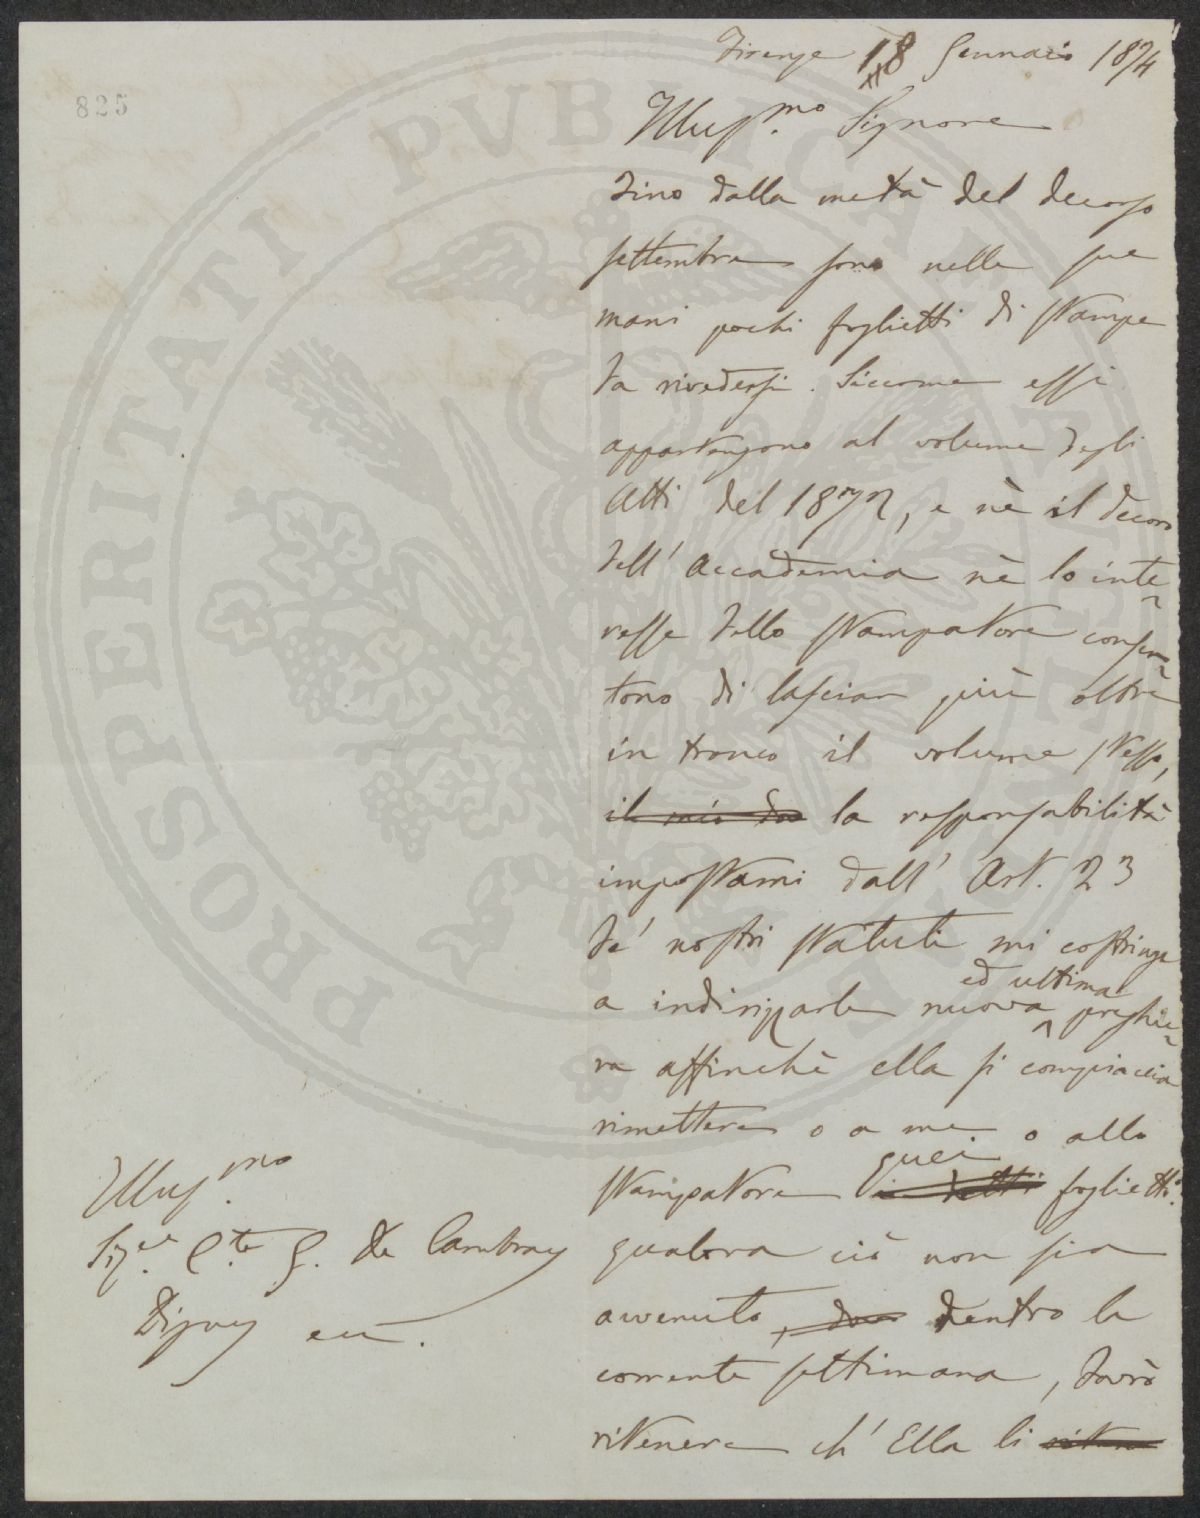 825
Firenze 18 Gennaio 1874
Illus.mo Signore
Fino dalla metà del decorso
settembre sono nelle sue
mani pochi foglietti di stampe
da rivedersi. Siccome essi
appartengono al volume degli
Atti del 1872, e nè il decoro
dell' Accademia nè lo inte
resse dello stampatore consen
tono di lasciar più oltre
in tronco il volume stesso,
il mio dov la responsabilità
impostami dall' Art. 23
de' nostri statuti mi costringe
a indirizzarle nuova ed ultima preghie
ra affinchè ella si compiaccia
rimettere o a me o allo
stampatore quei i detti foglietti.
qualora ciò non sia
avvenuto, dentro la
corrente settimana, dovrò
ritenere ch' Ella li
Illus.mo
Sig.re C.te G. De Cambray
Digny ecc.
PROSPERITATI PVBLICAE AVGENDAE